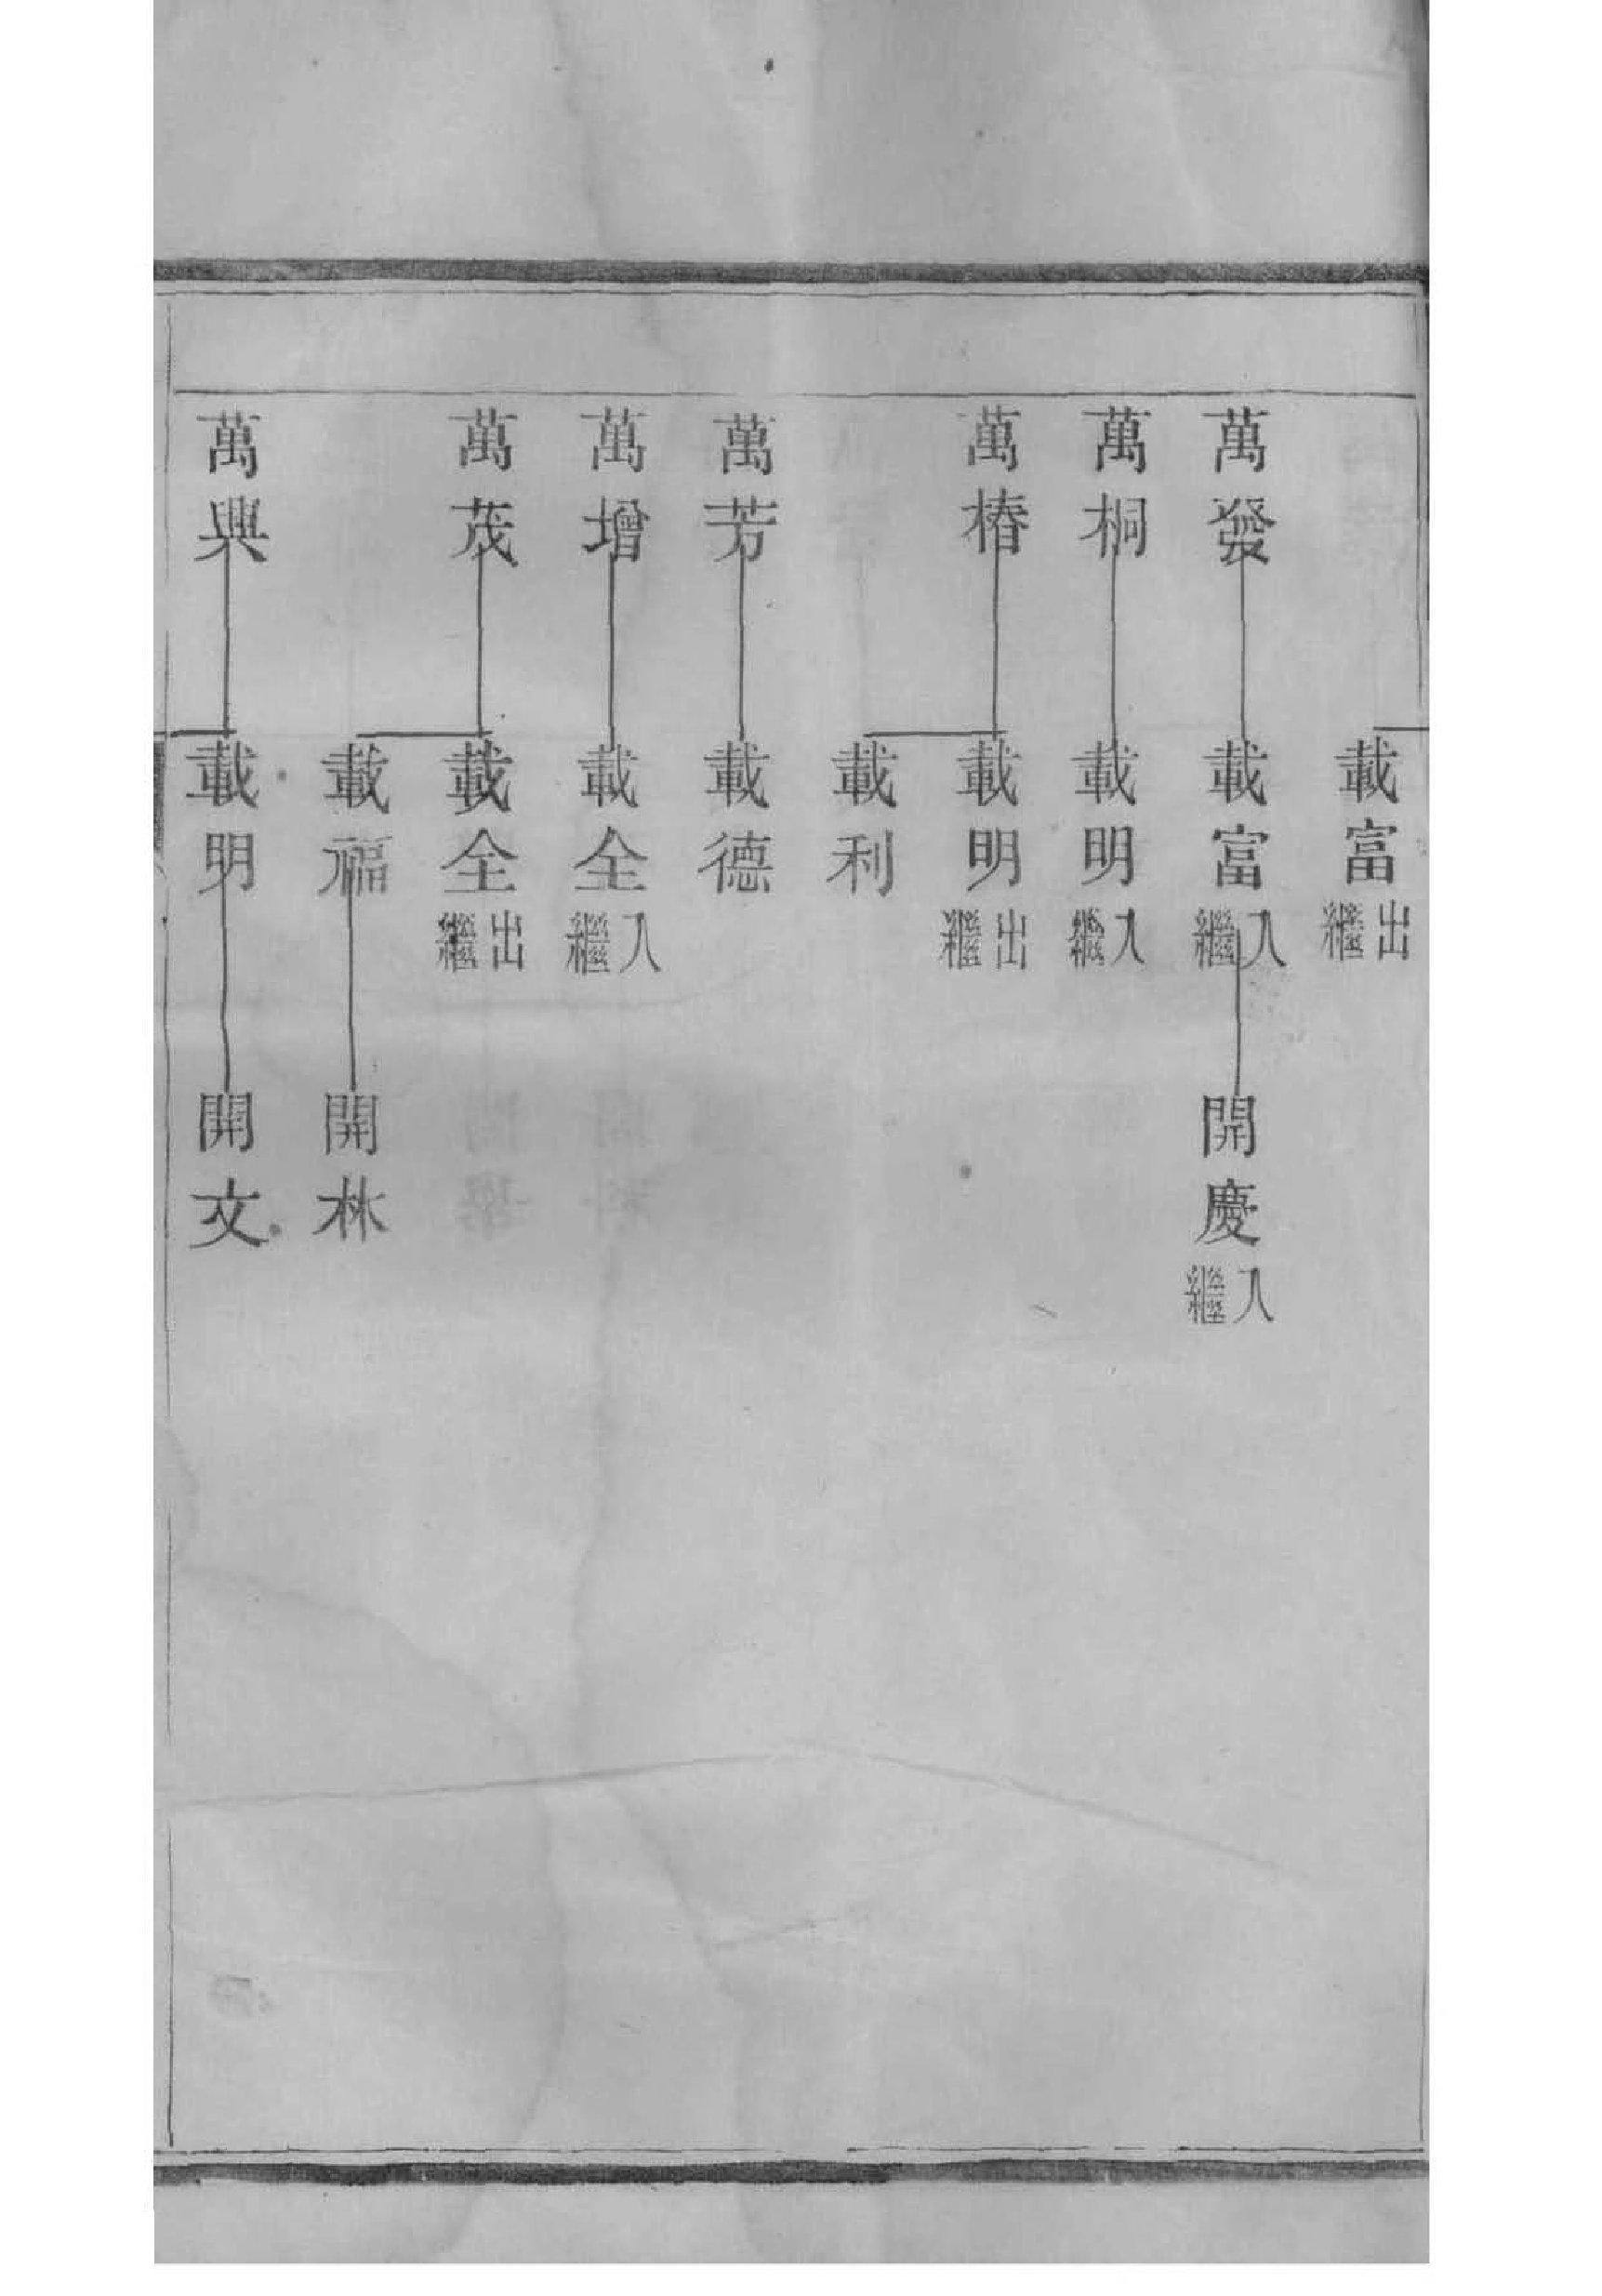 載富出繼
萬發
載富入繼
開慶入繼
萬桐
載明入繼
萬椿
載明出繼
載利
萬芳
載德
萬增
載全入繼
萬茂
載全出繼
載福
開林
萬興
載明
開文